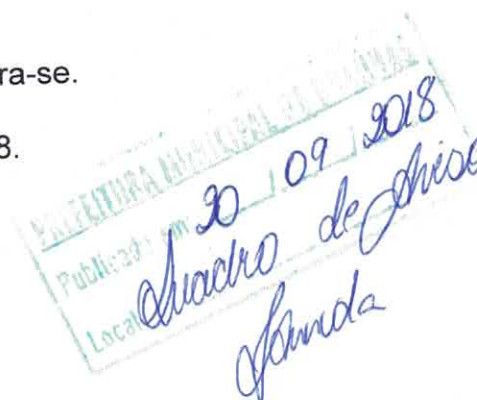 ra-se.
8.
PREFEITURA MUNICIPAL DE
Publicado em 20 / 09 / 2018
Local Quadro de Aviso